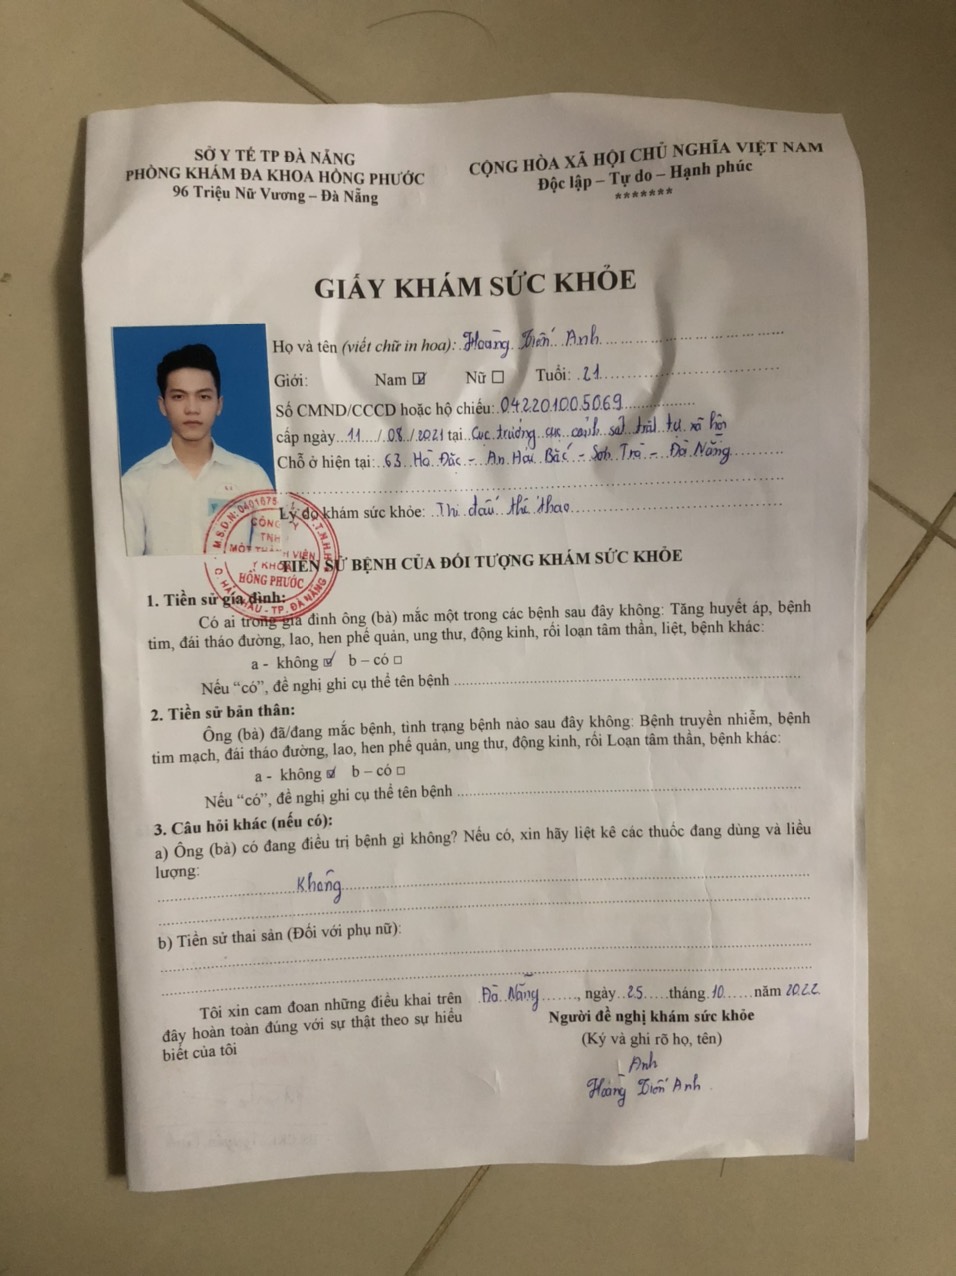 SỞ Y TẾ TP ĐÀ NẴNG
PHÒNG KHÁM ĐA KHOA HỒNG PHƯỚC
96 Triệu Nữ Vương – Đà Nẵng
CỘNG HÒA XÃ HỘI CHỦ NGHĨA VIỆT NAM
Độc lập – Tự do – Hạnh phúc
*******
GIẤY KHÁM SỨC KHỎE
Họ và tên (viết chữ in hoa): Hoàng Diễn Anh
Giới: Nam ☑ Nữ ☐ Tuổi: 21
Số CMND/CCCD hoặc hộ chiếu: 042201005069
cấp ngày 11/08/2021 tại Cục trưởng cục cảnh sát trật tự xã hội
Chỗ ở hiện tại: 63 Hà Đặc – An Hải Bắc – Sơn Trà – Đà Nẵng
Lý do khám sức khỏe: Thi đấu thể thao
M.S.D.N: 0401675
CÔNG TY
TNHH
MỘT THÀNH VIÊN
Y KHOA
HỒNG PHƯỚC
Q. HẢI CHÂU - TP. ĐÀ NẴNG
TIỀN SỬ BỆNH CỦA ĐỐI TƯỢNG KHÁM SỨC KHỎE
1. Tiền sử gia đình:
Có ai trong gia đình ông (bà) mắc một trong các bệnh sau đây không: Tăng huyết áp, bệnh
tim, đái tháo đường, lao, hen phế quản, ung thư, động kinh, rối loạn tâm thần, liệt, bệnh khác:
a - không ☑ b – có ☐
Nếu “có”, đề nghị ghi cụ thể tên bệnh
2. Tiền sử bản thân:
Ông (bà) đã/đang mắc bệnh, tình trạng bệnh nào sau đây không: Bệnh truyền nhiễm, bệnh
tim mạch, đái tháo đường, lao, hen phế quản, ung thư, động kinh, rối Loạn tâm thần, bệnh khác:
a - không ☑ b – có ☐
Nếu “có”, đề nghị ghi cụ thể tên bệnh
3. Câu hỏi khác (nếu có):
a) Ông (bà) có đang điều trị bệnh gì không? Nếu có, xin hãy liệt kê các thuốc đang dùng và liều
lượng:
Không
b) Tiền sử thai sản (Đối với phụ nữ):
Tôi xin cam đoan những điều khai trên
đây hoàn toàn đúng với sự thật theo sự hiểu
biết của tôi
Đà Nẵng, ngày 25 tháng 10 năm 2022
Người đề nghị khám sức khỏe
(Ký và ghi rõ họ, tên)
Anh
Hoàng Diễn Anh